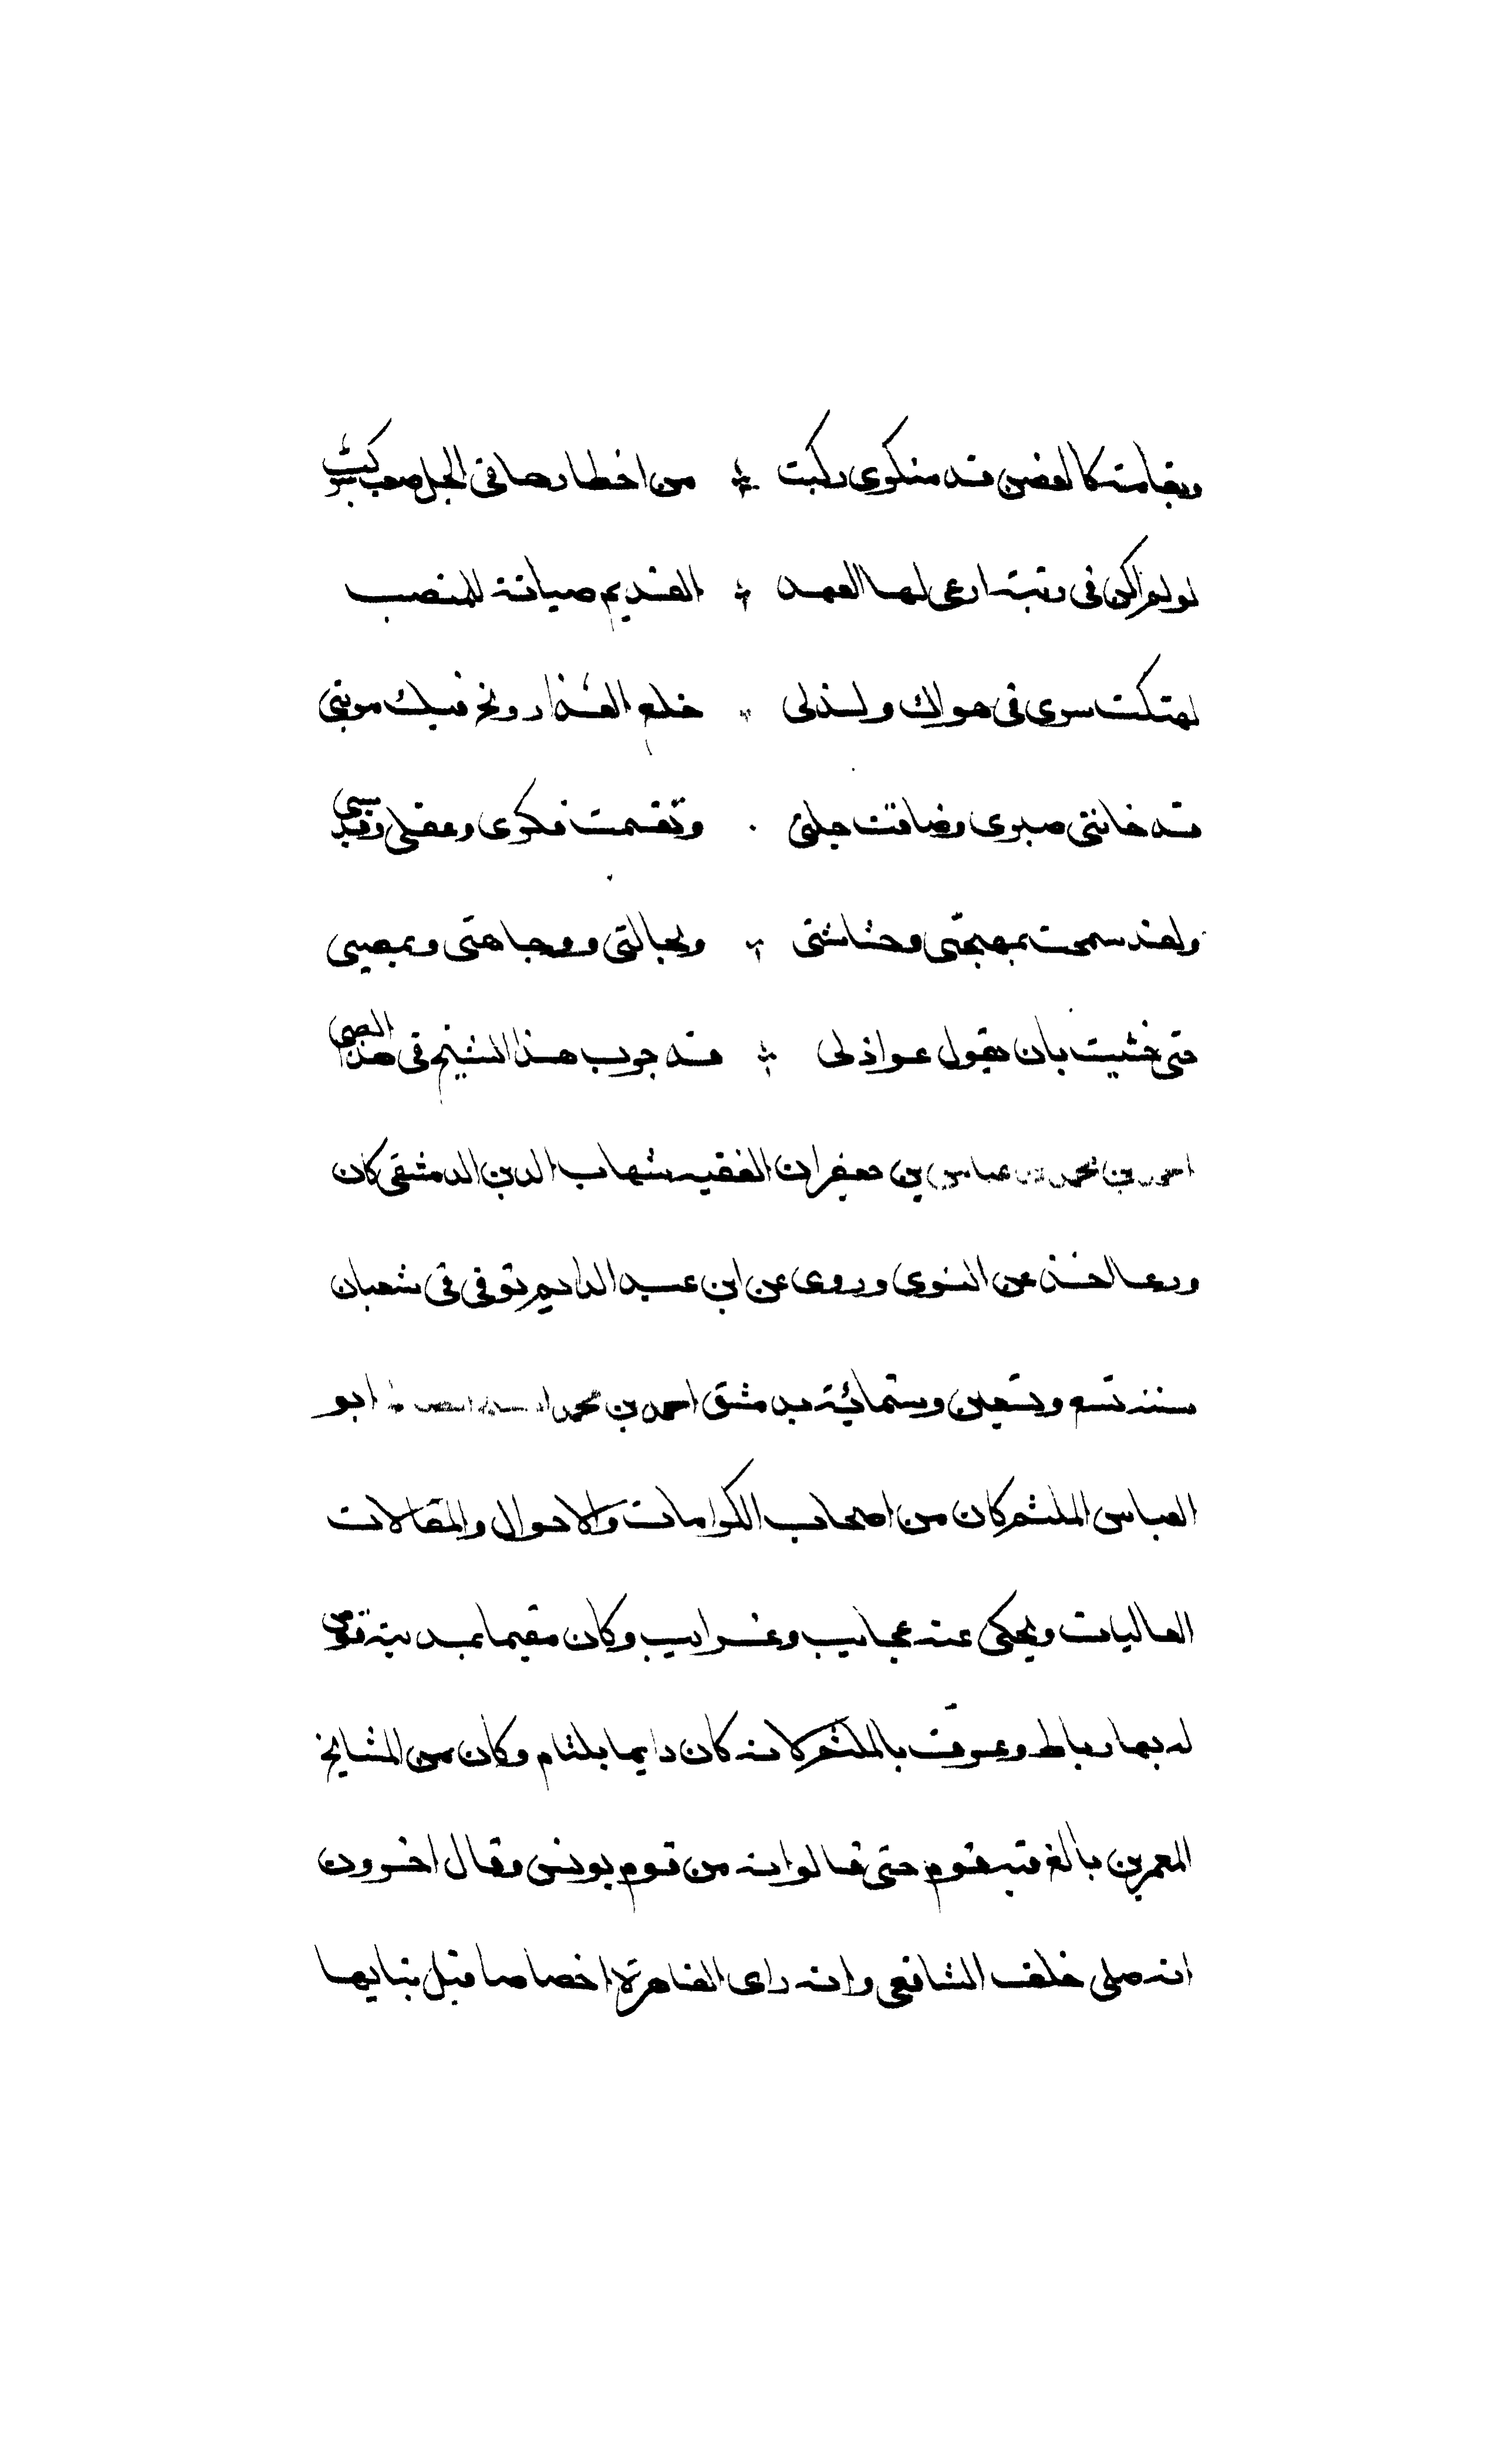 وبقامة كالغصن قد منكوى ركبت من اخطارها فى الحل صعب
لو لم اكن فى رتبة ارعى لها العهد القديم صيانة للمنصب
لهتكت سرى فى هواك ولذ لى خلع العذار ونح فيك مونبى
قد خاننى صبرى وضاقت حيلتى وتقسمت فكرى وعقلى
ولقد سمحت بمهجتى وحشاشتى وبحالتى ووجاهتى وبمنصبى
حتى خشيت بان يقول عواذلى قد جرب هذا الشيخ فى هذا الصبى
احمد بن محمد بن عباس بن جعفران الفقيه شهاب الدين الدمشقى كان
ورعا اخذ عن النووى وروى عن ابن عبد الدايم توفى فى شعبان
سنة تسع وتسعين وستمائة بدمشق احمد بن محمد ابو
العباس الملثم كان من اصحاب الكرامات والاحوال والمقالات
العاليات ويحكى عنه عجايب وغرايب وكان مقيما بمدينة قوص
له بها رباط وعرف بالملثم لانه كان دايما بلثام وكان من المشايخ
المعمرين بالغ فيه قوم حتى قالوا انه من قوم يونس وقال اخرون
انه صلى خلف الشافعى وانه راى القاهرة اخصاصا قبل بنايها